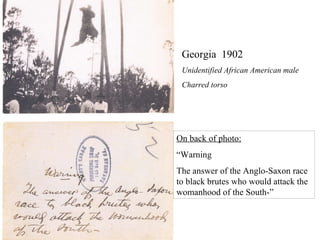 Georgia 1902
Unidentified African American male
Charred torso
On back of photo:
“Warning
The answer of the Anglo-Saxon race
to black brutes who would attack the
womanhood of the South-”
Warning
The answer of the Anglo-Saxon
race to black brutes who
would attack the womanhood
of the South-